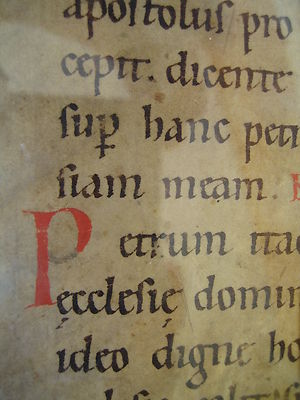 apostolus pro
cepit. dicente
sup̱ hanc petr
siam meam.
Petrum itaq
ęcclesię domin
ideo digne ho